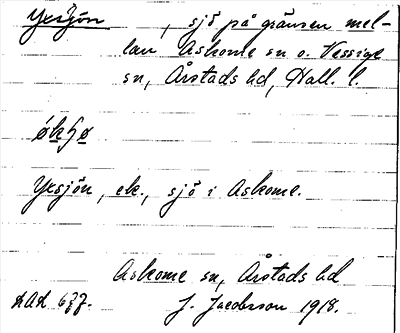 Yxsjön, sjö på gränsen mel-
lan Askome sn o. Vessige
sn, Årstads hd, Hall. l.
Yxsjön, ek., sjö i Askome.
Askome sn, Årstads hd
J. Jacobsson 1918.